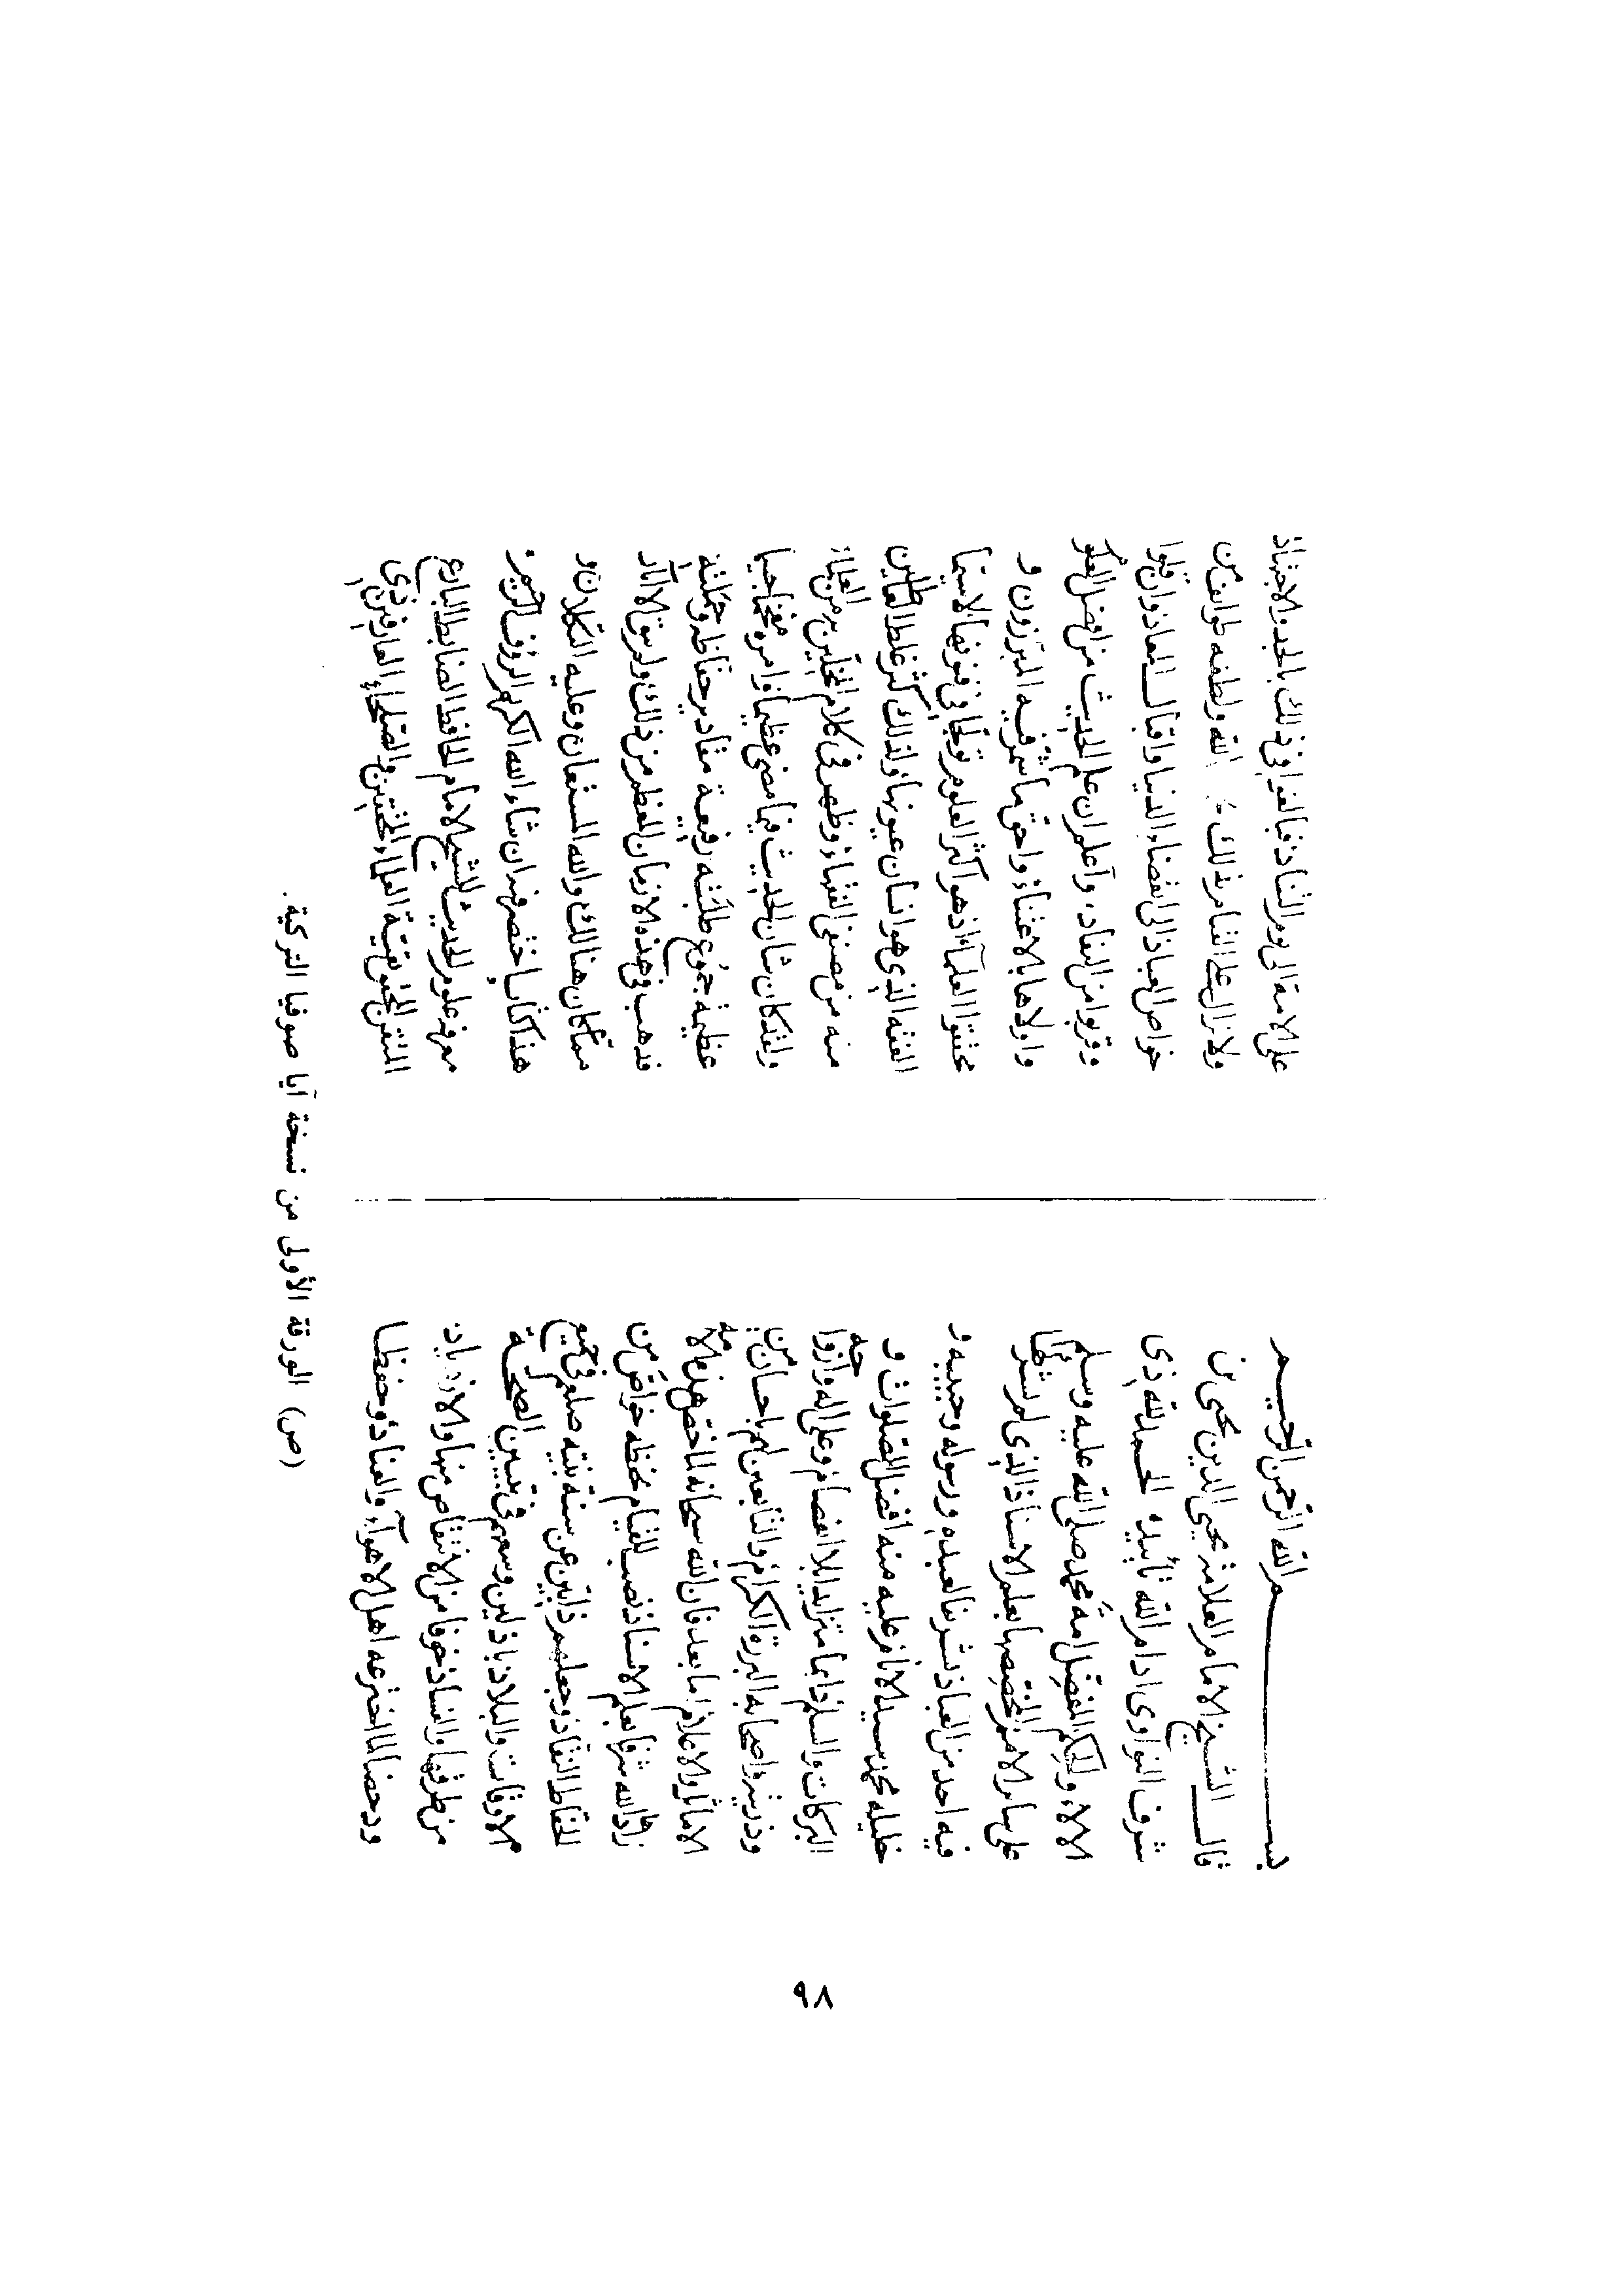 بسم الله الرحمن الرحيم
قال الشيخ الامام العلامة محيى الدين يحيى بن
شرف النواوى ادام الله تأييده الحمد لله ذى
الالاء والحكم المفضل امة محمد صلى الله عليه وسلم
على ساير الامم المخصصها بعلم الاسناد الذى لم يشركها
فيه احد من العباد نشرفا لعبده ورسوله وحبيبه و
خليله محمد سيد الانام عليه منه افضل الصلوات و
البركات والسلم دايما متزايدا بلا انفصام وعلى اله وازواجه
وذريته واصحابه البررة الكرام والتابعين لهم باحسان من
الاماثل والاعلام اما بعد فان الله سبحانه لما خص هذه الامة
زادها الله شرفا بعلم الاسناد نصب للقيام بحفظه خواص من
الحفاظ النقاد وجعلهم ذابين عن سنة نبيه صلعم في جميع
الاوقات والبلاد باذلين وسعهم في تبيين الصحة
من طرقها والفساد خوفا من الانتقاص منها والازدياد
ودحضا لما اخترعه اهل الاهواء والعناد وحفظا
على الامة الى يوم التناد فبالغوا في ذلك بالجد والاجتهاد
ولا تزال على القيام بذلك الله ولطفه طوايف من
خواص العباد الى انقضاء الدنيا واقبال المعاد وان قلوا
وقربوا من النفاد واعلم ان علم الحديث من افضل العلوم
واولاها بالاعتناء واحق ما شمر فيه المبرزون و
محققوا العلماء اذ هو اكثر العلوم تولجا في فنونها لاسيما
الفقه الذي هو انسان عيونها ولذلك كثر غلط العاطلين
منه من مصنفى الفقهاء وظهر في كلام المخلين به من العلماء
ولقد كان شان الحديث فيما مضى عظيما وامره مفخما جسيما
عظيمة جموع طلبته رفيعة مقادير حفاظه وحملته
فذهب في هذه الازمان المعظم من ذلك ولم يبق الا اثار
مما كان هنالك والله المستعان وعليه التكلان و
هذا كتاب اختصر فيه ان شاء الله الكريم الرؤف الرحيم
معرفة علوم الحديث للشيخ الامام الحافظ الضابط البارع
المتقن المحقق بقية العلماء المحققين والصلحاء العارفين ذى
(ص) الورقة الأولى من نسخة آيا صوفيا التركية.
٩٨